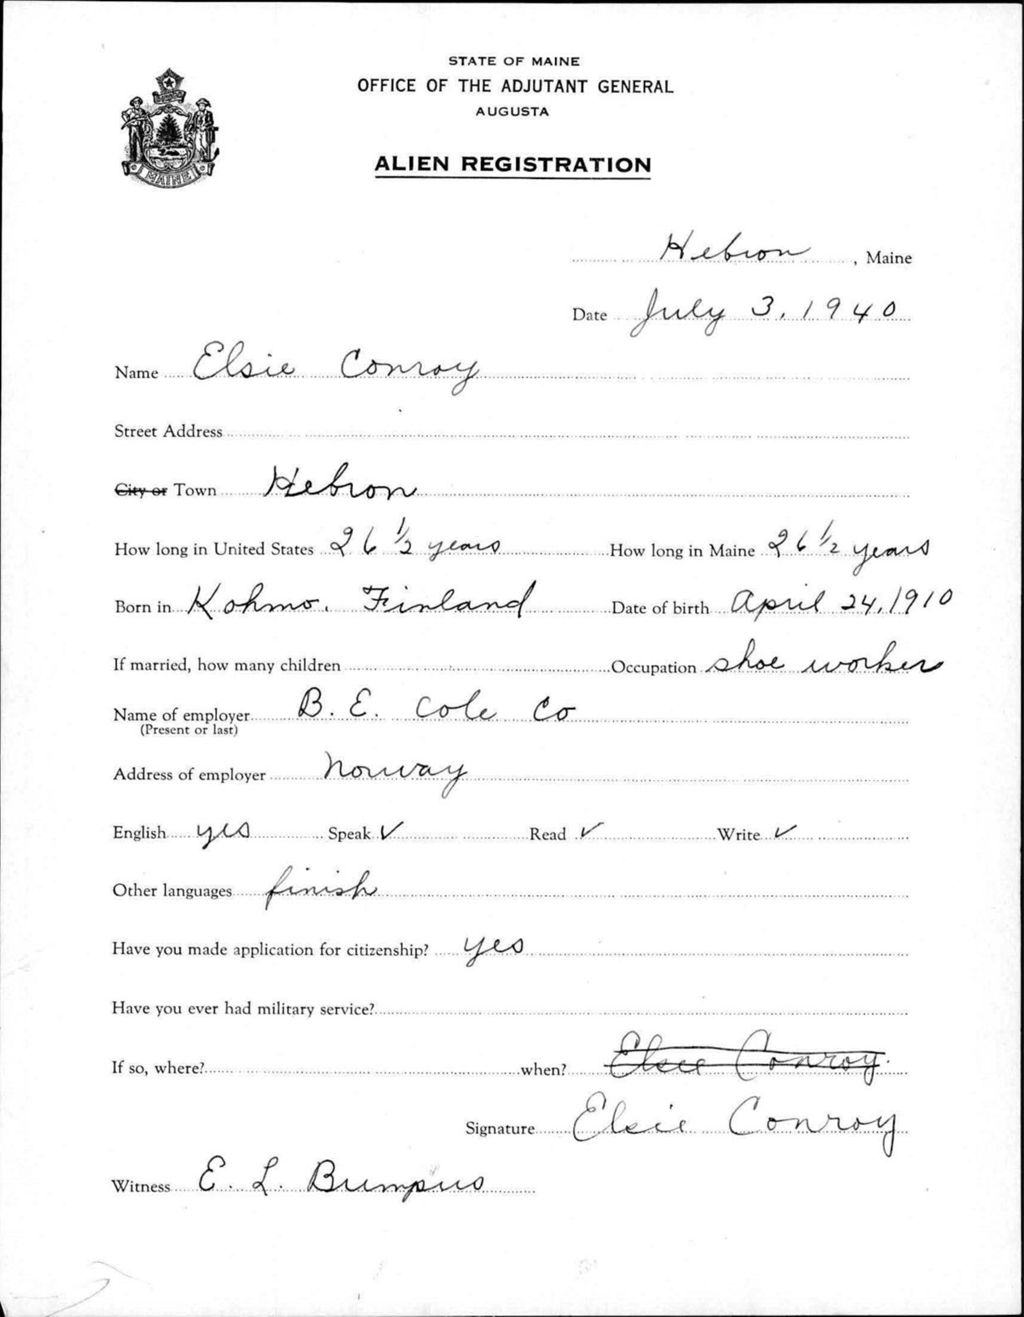 STATE OF MAINE
OFFICE OF THE ADJUTANT GENERAL
AUGUSTA
ALIEN REGISTRATION
MAINE
Hebron, Maine
Date July 3, 1940
Name Elsie Conroy
Street Address
City or Town Hebron
How long in United States 26 1/2 years How long in Maine 26 1/2 years
Born in Kohmo, Finland Date of birth April 24, 1910
If married, how many children Occupation shoe worker
Name of employer B. E. Cole Co
(Present or last)
Address of employer Norway
English yes Speak ✓ Read ✓ Write ✓
Other languages finish
Have you made application for citizenship? yes
Have you ever had military service?
If so, where? when? Elsie Conroy.
Signature Elsie Conroy
Witness E. L. Bumpus